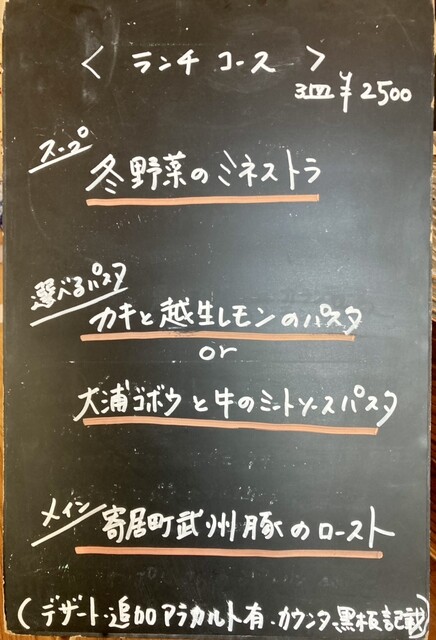 〈 ランチ コース 〉
3皿 ¥2500
スープ
冬野菜のミネストラ
選べるパスタ
カキと越生レモンのパスタ
or
大浦ゴボウと牛のミートソースパスタ
メイン
寄居町武州豚のロースト
(デザート・追加アラカルト有・カウンター黒板記載)